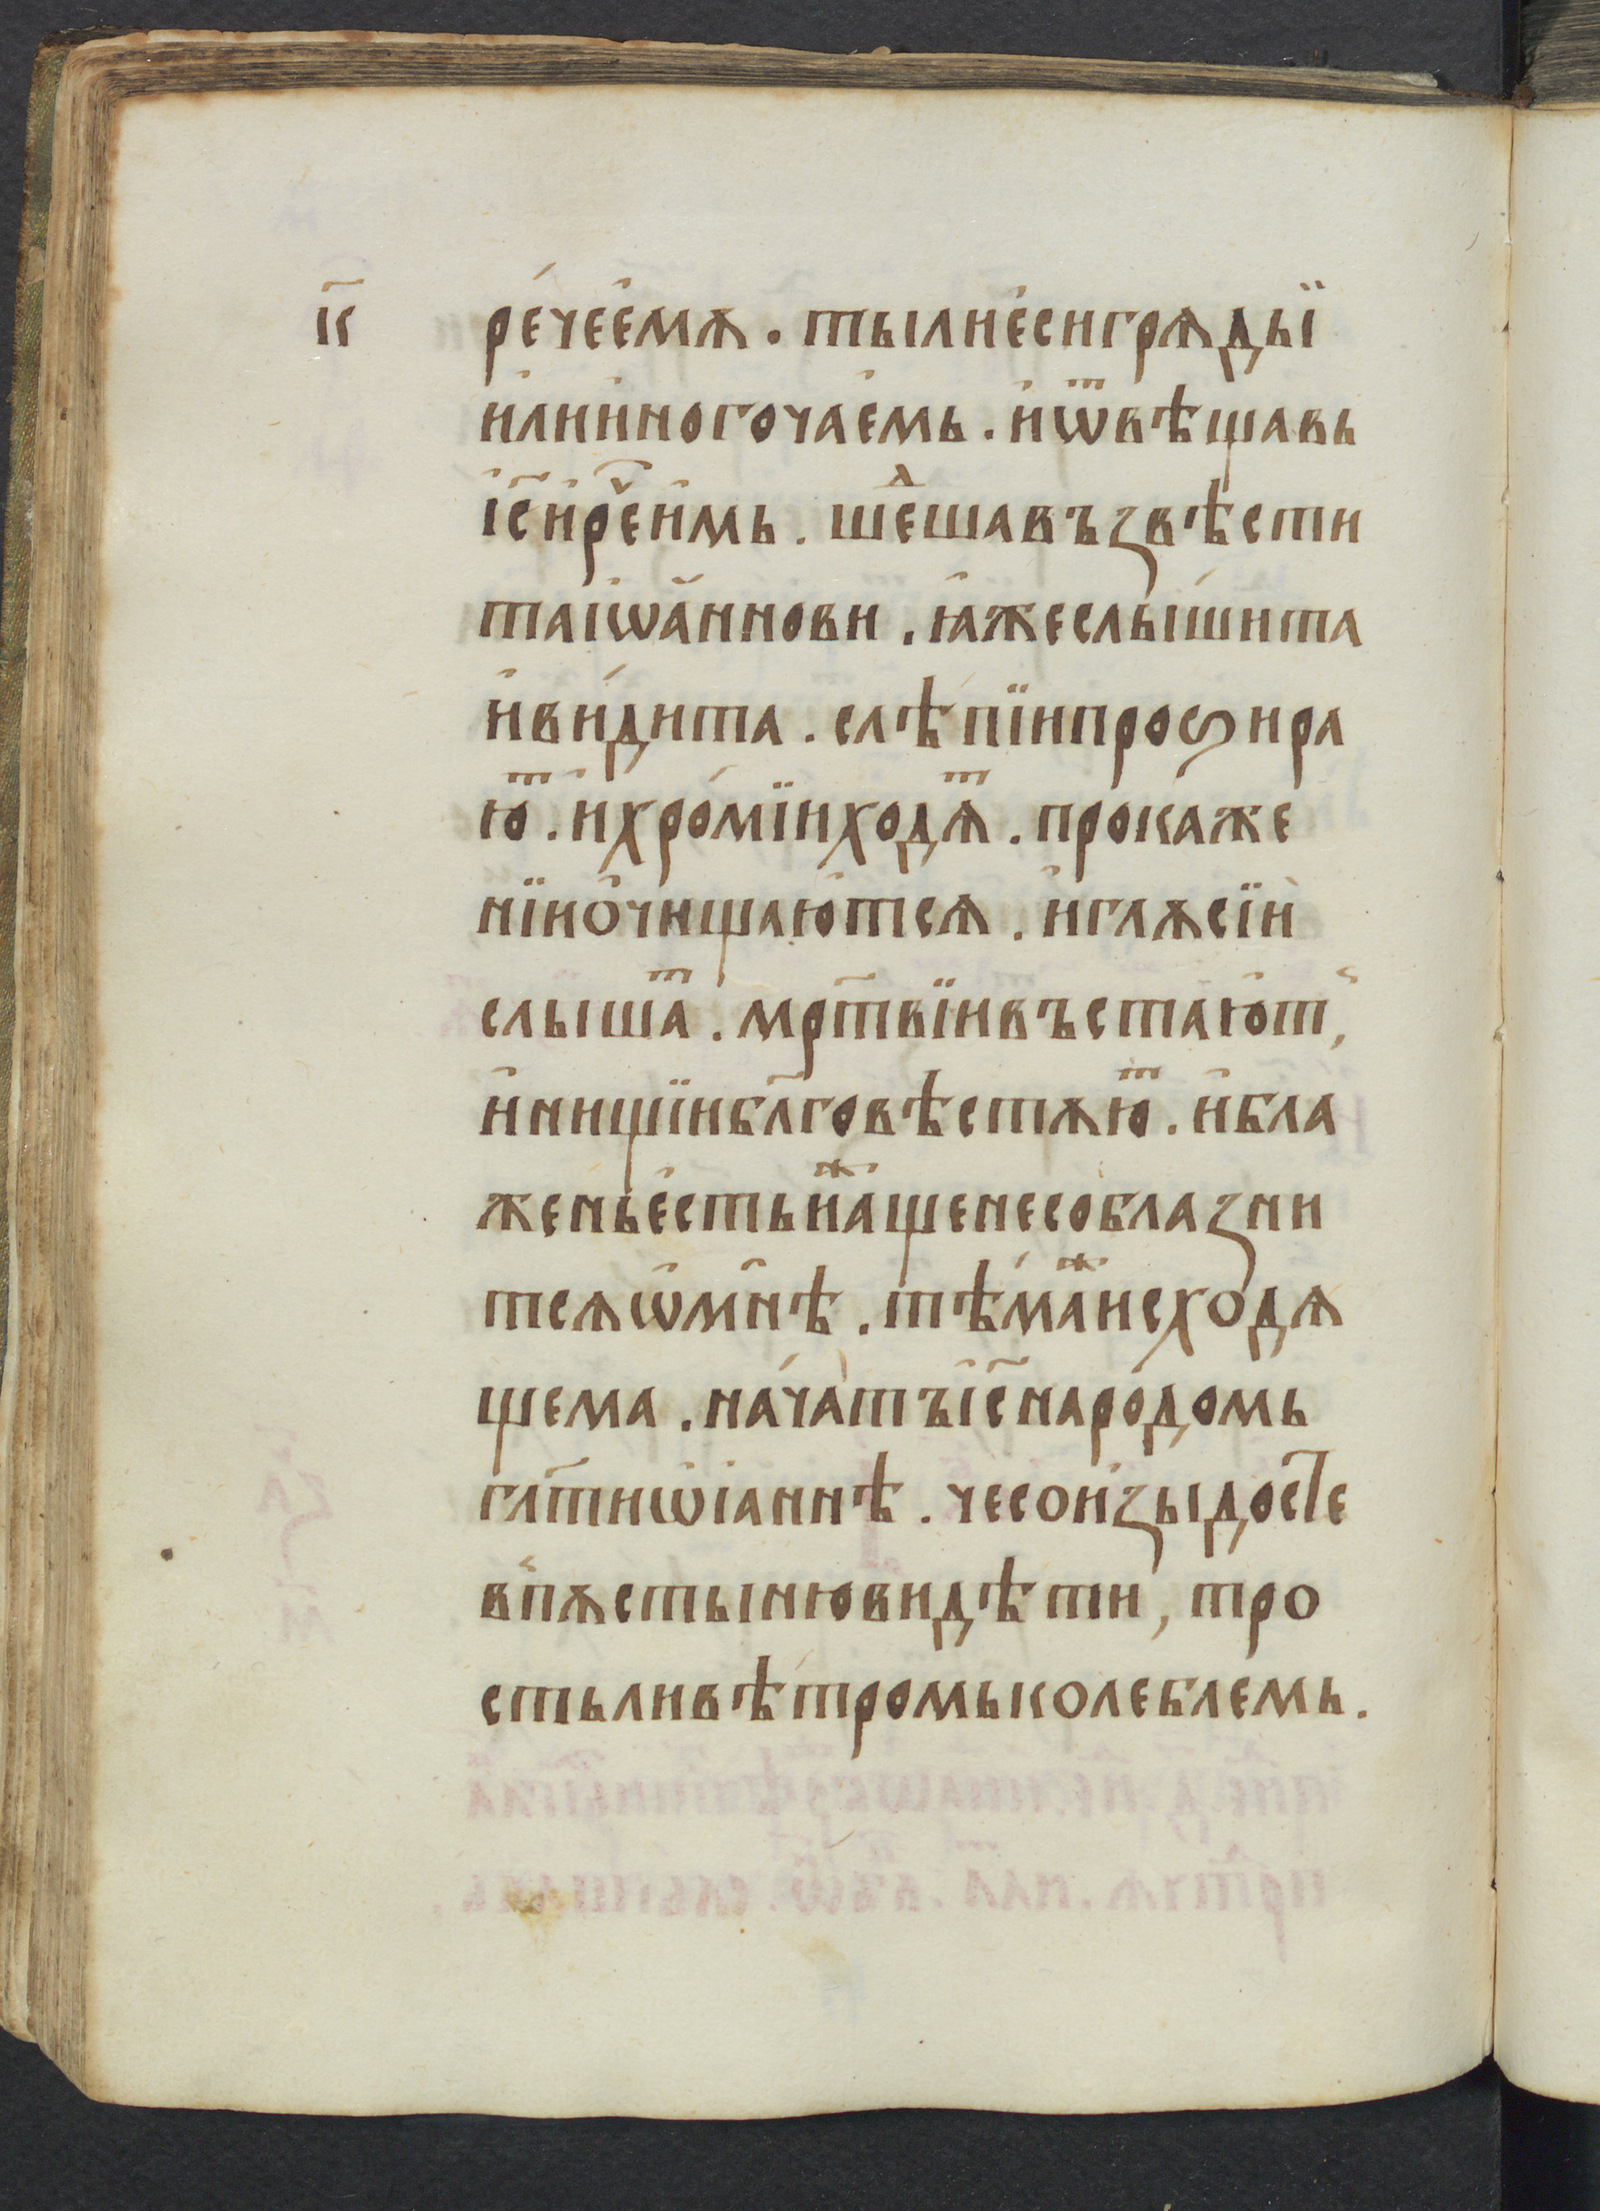 к҃
ре́чеемѫ . тылиесигрѧдӹ
илииногочаемь . иѿвѣщавь
іс҃ир̅еимь . шеⷣшавъзвѣсти
таіѡанновн . ꙗжеслы́шита
иви́дита . слѣпїипроѕира
юⷮ . ихро́мїиходѧⷮ . прокаже
нїиочищаютсѧ . иглѫсїи
слышаⷮ . мр҃твїивъстаютⷭ ,
инищїибл҃говѣстѫюⷮ . ибла
женьестьиⷤащенесоблазни
тсѧѡмнѣ . тѣмаⷤисходѧ
щема . на́чатъіс҃наро́домь
гл҃тиѡіаннѣ . чесоизыдосте
впѫстынювидѣти , тро
стьливѣтромьколеблемь .